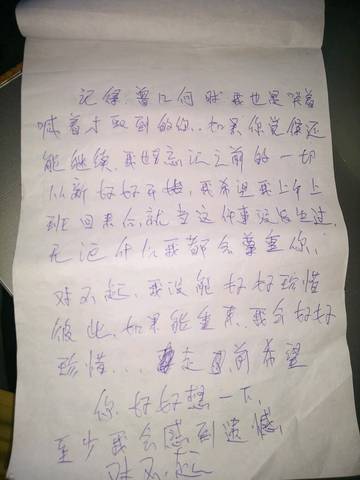 记得曾几何时我也是哭着
喊着才取到的你..如果你觉得还
能继续.我也忘记之前的一切
从新好好开始,我希望我上午上
班回来后,就当这件事没发生过.
无论什么我都会尊重你.
对不起.我没能好好珍惜
彼此.如果能重来.我会好好
珍惜... 走之前希望
你好好想一下.
至少我会感到遗憾.
对不起